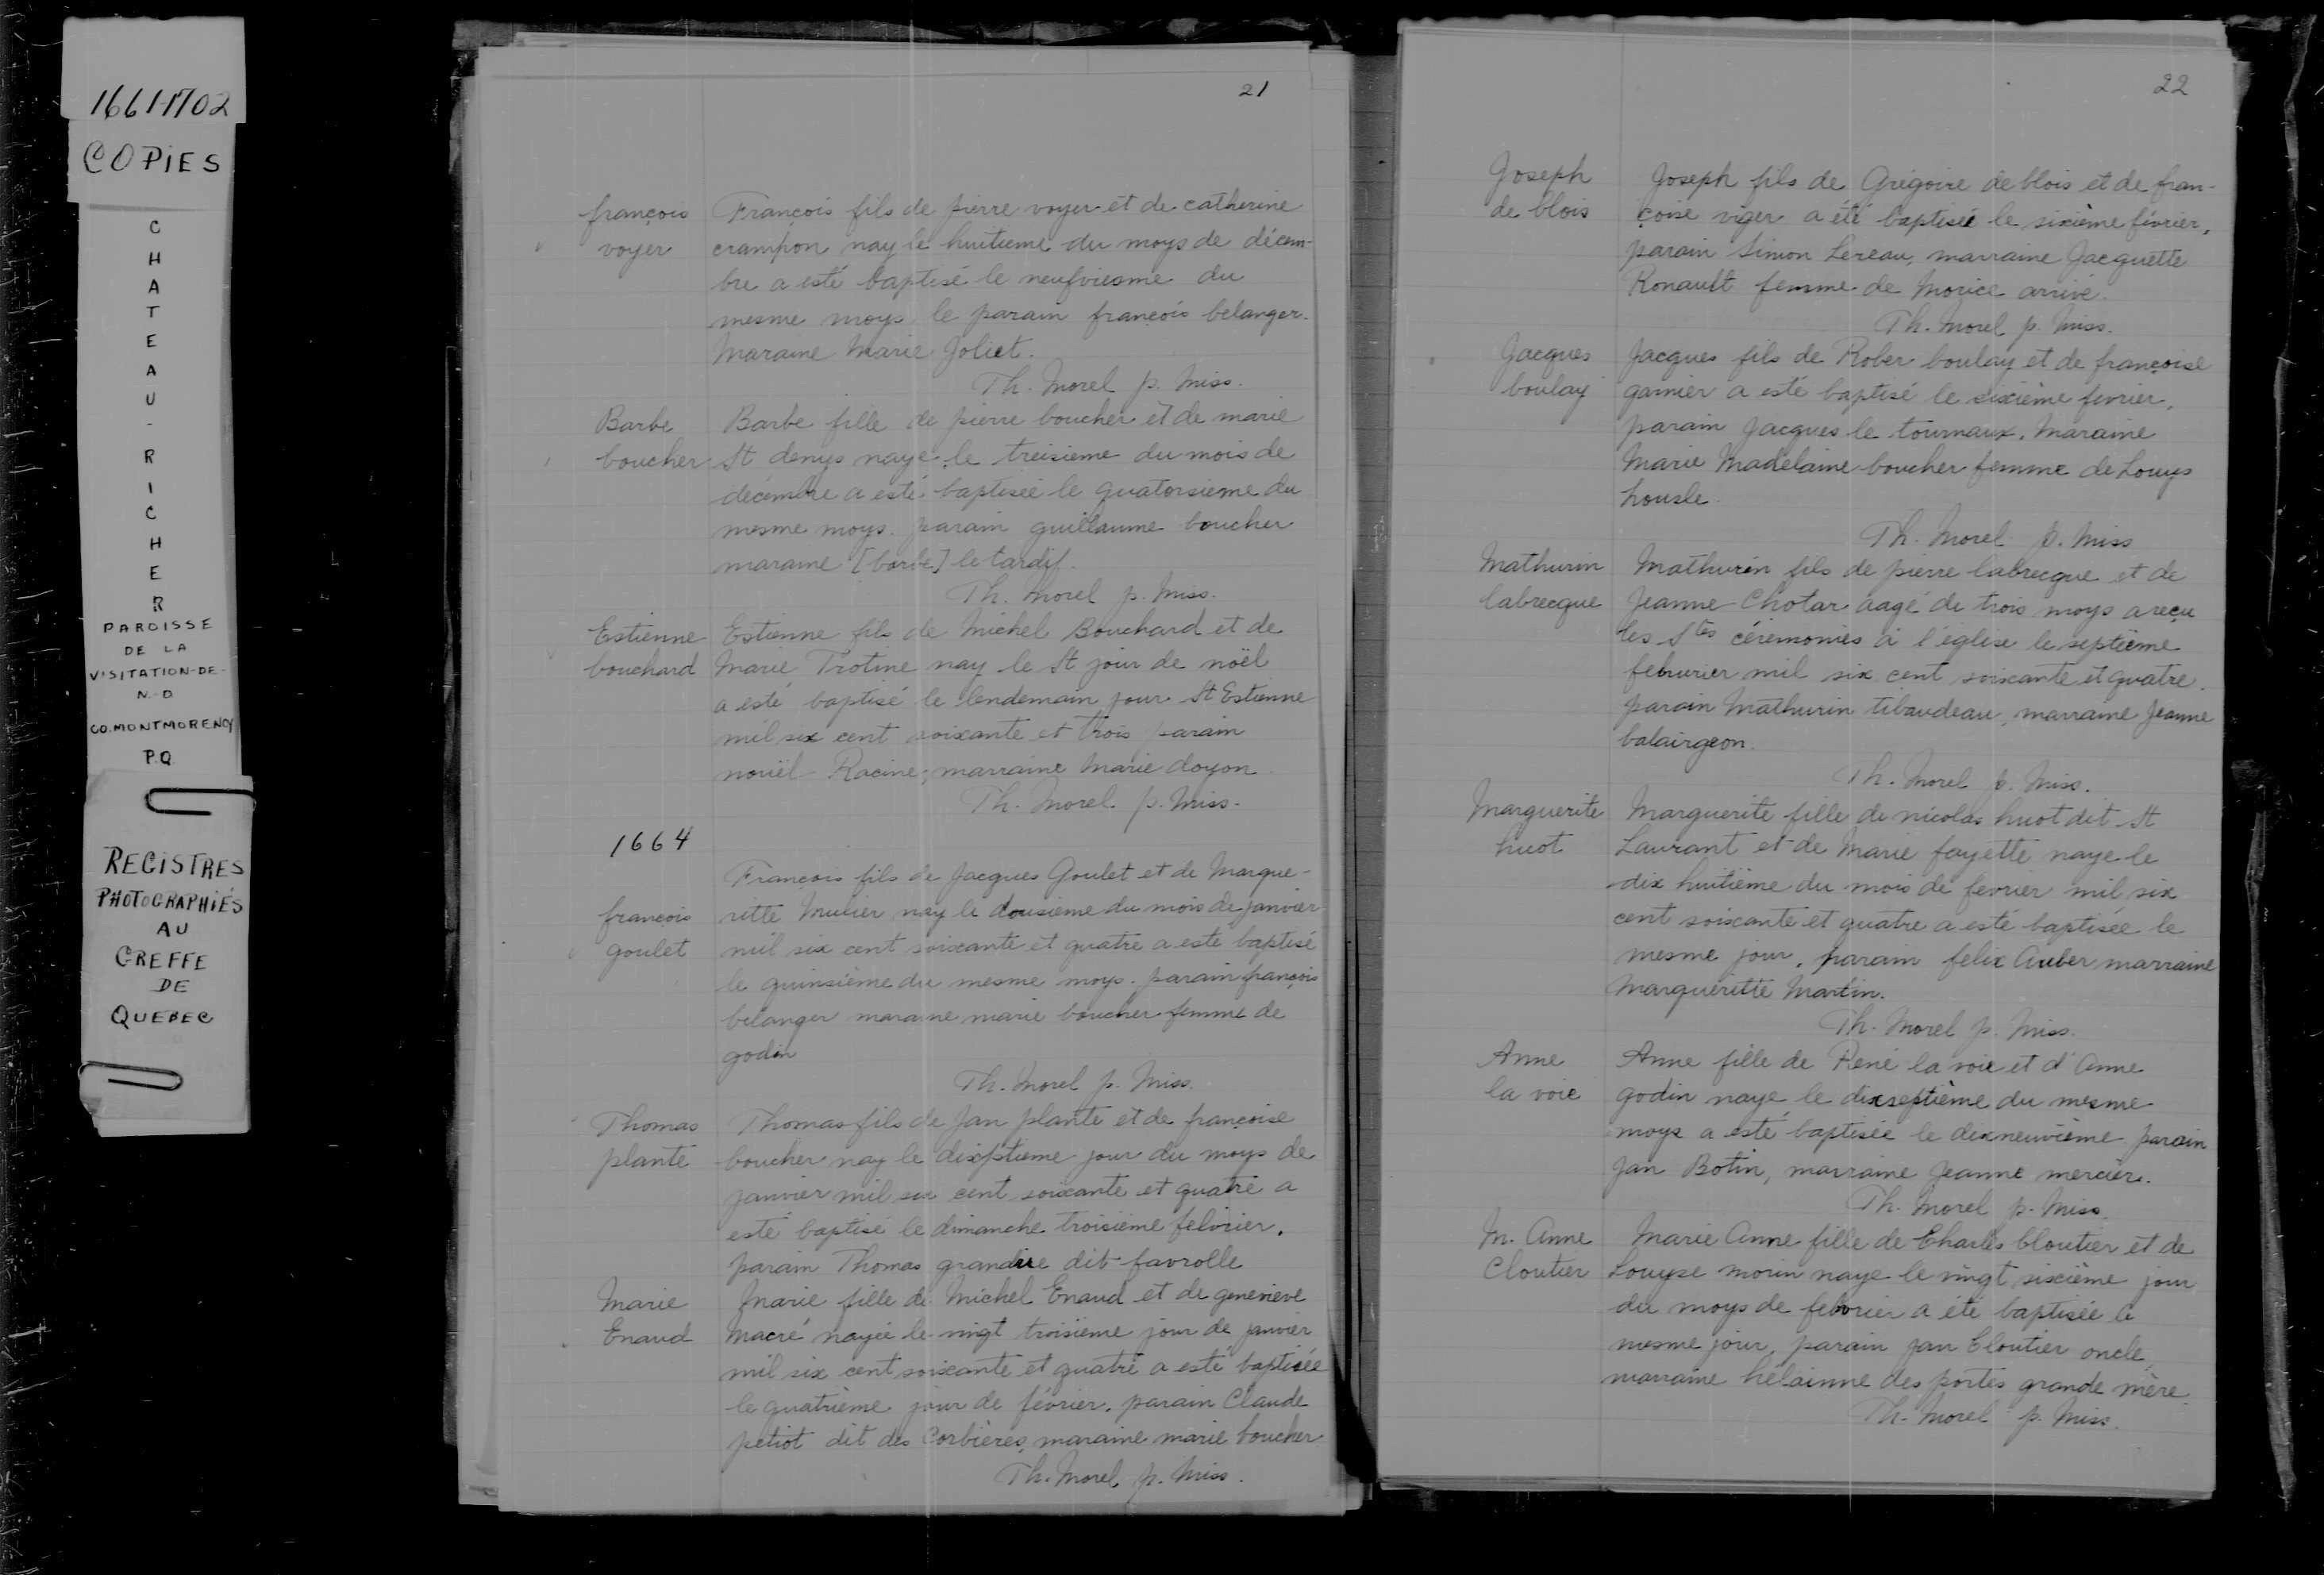 1661-1702
COPIES
CHATEAU-RICHER
PAROISSE
DE LA
VISITATION-DE-
N.-D
CO. MONTMORENCY
P.Q.
REGISTRES
PHOTOGRAPHIÉS
AU
GREFFE
DE
QUEBEC
21
françois
voyer
François fils de pierre voyer et de catherine
crampon nay le huitieme du moys de décem-
bre a esté baptisé le neufviesme du
mesme moys le parain françois belanger.
Maraine Marie Joliet.
Th. Morel p. Miss.
Barbe
boucher
Barbe fille de pierre boucher et de marie
St denys naye le treisieme du mois de
décembre a esté baptisée le quatorsieme du
mesme moys. parain guillaume boucher
maraine [barbe] le tardif.
Th. Morel p. Miss.
Estienne
bouchard
Estienne fils de Michel Bouchard et de
Marie Trotine nay le St jour de noël
a esté baptisé le lendemain jour St Estienne
mil six cent soixante et trois parain
nouël Racine, marraine Marie doyon
Th. Morel p. Miss.
1664
françois
goulet
François fils de Jacques Goulet et de Margue-
ritte Mulier nay le dousieme du mois de janvier
mil six cent soixante et quatre a esté baptisé
le quinsième du mesme moys. parain françois
belanger maraine marie boucher femme de
godin
Th. Morel p. Miss.
Thomas
plante
Thomas fils de Jan plante et de françoise
boucher nay le dixseptieme jour du moys de
janvier mil six cent soixante et quatre a
esté baptisé le dimanche troisième febvrier.
parain Thomas grandire dit favrolle
Marie
Enaud
Marie fille de Michel Enaud et de geneviève
Macré nayée le vingt troisieme jour de janvier
mil six cent soixante et quatre a esté baptisée
le quatrième jour de février. parain Claude
petiot dit des Corbières, maraine marie boucher
Th. Morel p. Miss.
22
Joseph
de blois
Joseph fils de Grégoire de blois et de fran-
çoise viger a été baptisée le sixième février,
parain Simon Lereau, marraine Jacquette
Ronault femme de Morice arrivé.
Th. Morel p. Miss.
Jacques
boulay
Jacques fils de Rober boulay et de françoise
garnier a esté baptisé le sixième fevrier,
parain Jacques le tournaux. Maraine
Marie Madelaine boucher femme de Louys
housle
Th. Morel p. Miss
Mathurin
labrecque
Mathurin fils de pierre labrecque et de
Jeanne Chotar aagé de trois moys a reçu
les Stes cérémonies à l'église le septième
februrier mil six cent soixante et quatre.
parain Mathurin tibaudeau, marraine Jeanne
balairgeon.
Th. Morel p. Miss.
Marguerite
huot
Marguerite fille de nicolas huot dit St
Laurant et de Marie fayette naye le
dix huitième du mois de fevrier mil six
cent soixante et quatre a esté baptisée le
mesme jour, parain felix Auber marraine
Margueritte Martin.
Th. Morel p. Miss.
Anne
la voie
Anne fille de René la voie et d'Anne
godin naye le dixseptième du mesme
moys a esté baptisée le dixneuvième parain
Jan Botin, marraine Jeanne mercier.
Th. Morel p. Miss.
M. Anne
Cloutier
Marie Anne fille de Charles Cloutier et de
Louyse morin naye le vingt sixième jour
du moys de febvrier a été baptisée le
mesme jour, parain Jan Cloutier oncle,
marraine hélainne des portes grande mère.
Th. Morel p. Miss.